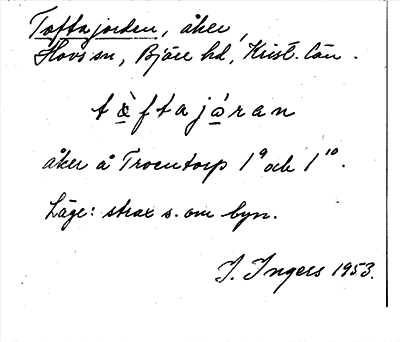 Toftajorden, åker,
Hovs sn, Bjäre hd, Krist. län.
tæ̀ftajɑ́ran
åker å Troentorp 1⁹ och 1¹⁰.
Läge: strax s. om byn.
I. Ingers 1953.